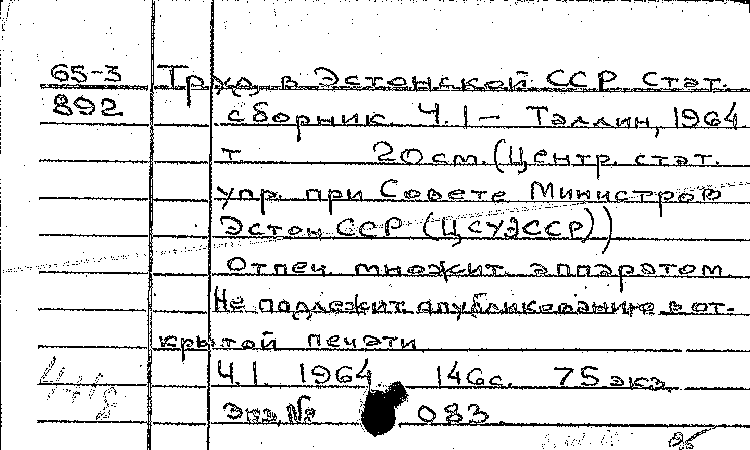 65-3 Труд в Эстонской ССР Стат.
892 сборник. Ч. 1 – Таллин, 1964
т 20 см. (Центр. стат.
упр. при Совете Министров
Эстон ССР (ЦСУЭССР))
Отпеч. множит. аппаратом
Не подлежит опубликованию в от-
крытой печати
Ч. 1. 1964 146 с. 75 экз.
Экз. № 083